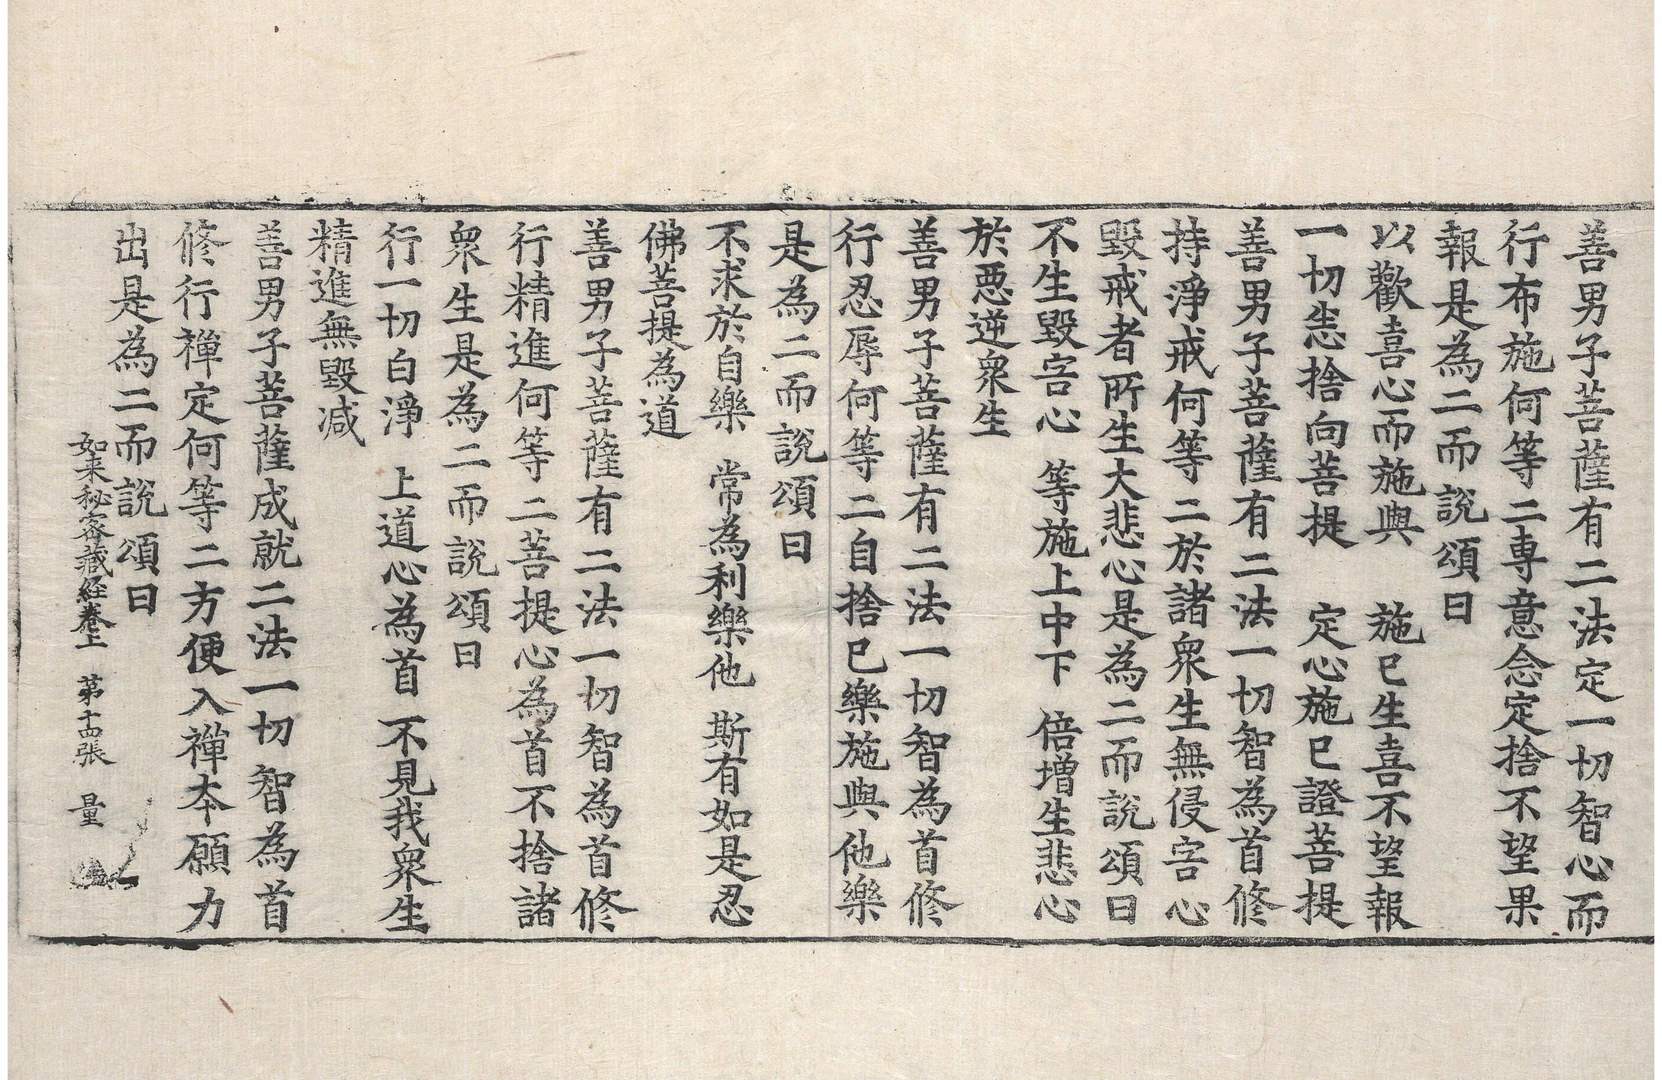 善男子菩薩有二法定一切智心而
行布施何等二専意念定捨不望果
報是為二而說頌曰
以歡喜心而施與　施已生喜不望報
一切恙捨向菩提　定心施已證菩提
善男子菩薩有二法一切智為首修
持淨戒何等二於諸衆生無侵害心
毀戒者所生大悲心是為二而說頌曰
不生毀害心　等施上中下　倍增生悲心
於惡逆衆生
善男子菩薩有二法一切智為首修
行忍辱何等二自捨已樂施與他樂
是為二而說頌曰
不求於自樂　常為利樂他　斯有如是忍
佛菩提為道
善男子菩薩有二法一切智為首修
行精進何等二菩提心為首不捨諸
衆生是為二而說頌曰
行一切白淨　上道心為首　不見我衆生
精進無毀減
善男子菩薩成就二法一切智為首
修行禪定何等二方便入禪本願力
出是為二而說頌曰
如来秘密藏経卷上　第十四張　量